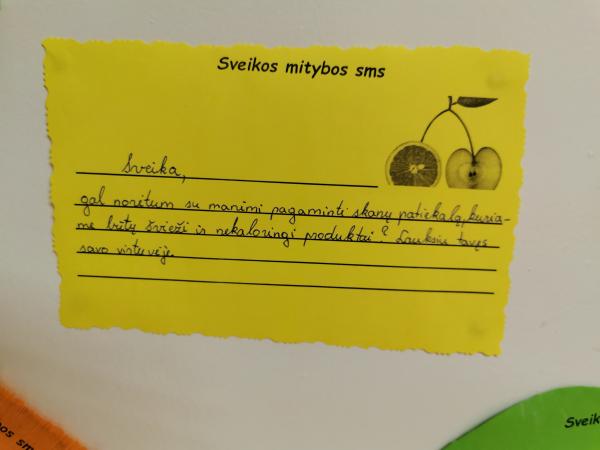 Sveikos mitybos sms
Sveika,
gal norėtum su manimi pagaminti skanų patiekalą, kuria-
me būtų švieži ir nekaloringi produktai? Lauksiu tavęs
savo virtuvėje.
os sm
Sveik